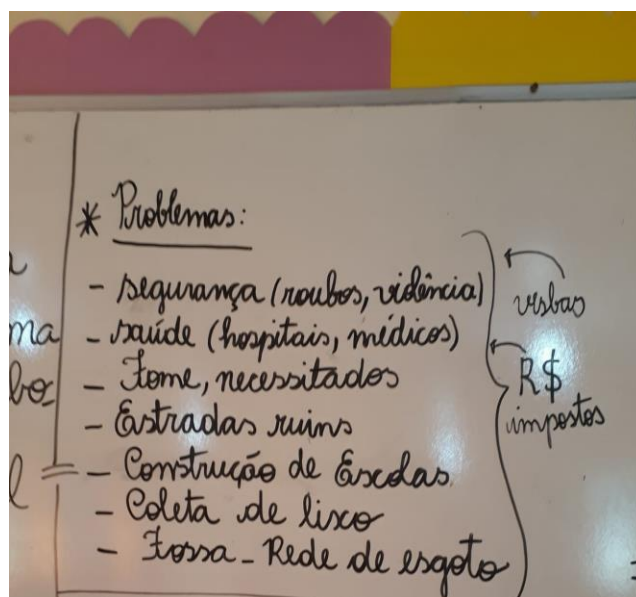 * Problemas:
- segurança (roubos, violência)
- saúde (hospitais, médicos)
- Fome, necessitados
- Estradas ruins
- Construção de Escolas
- Coleta de lixo
- Fossa - Rede de esgoto
R$
impostos